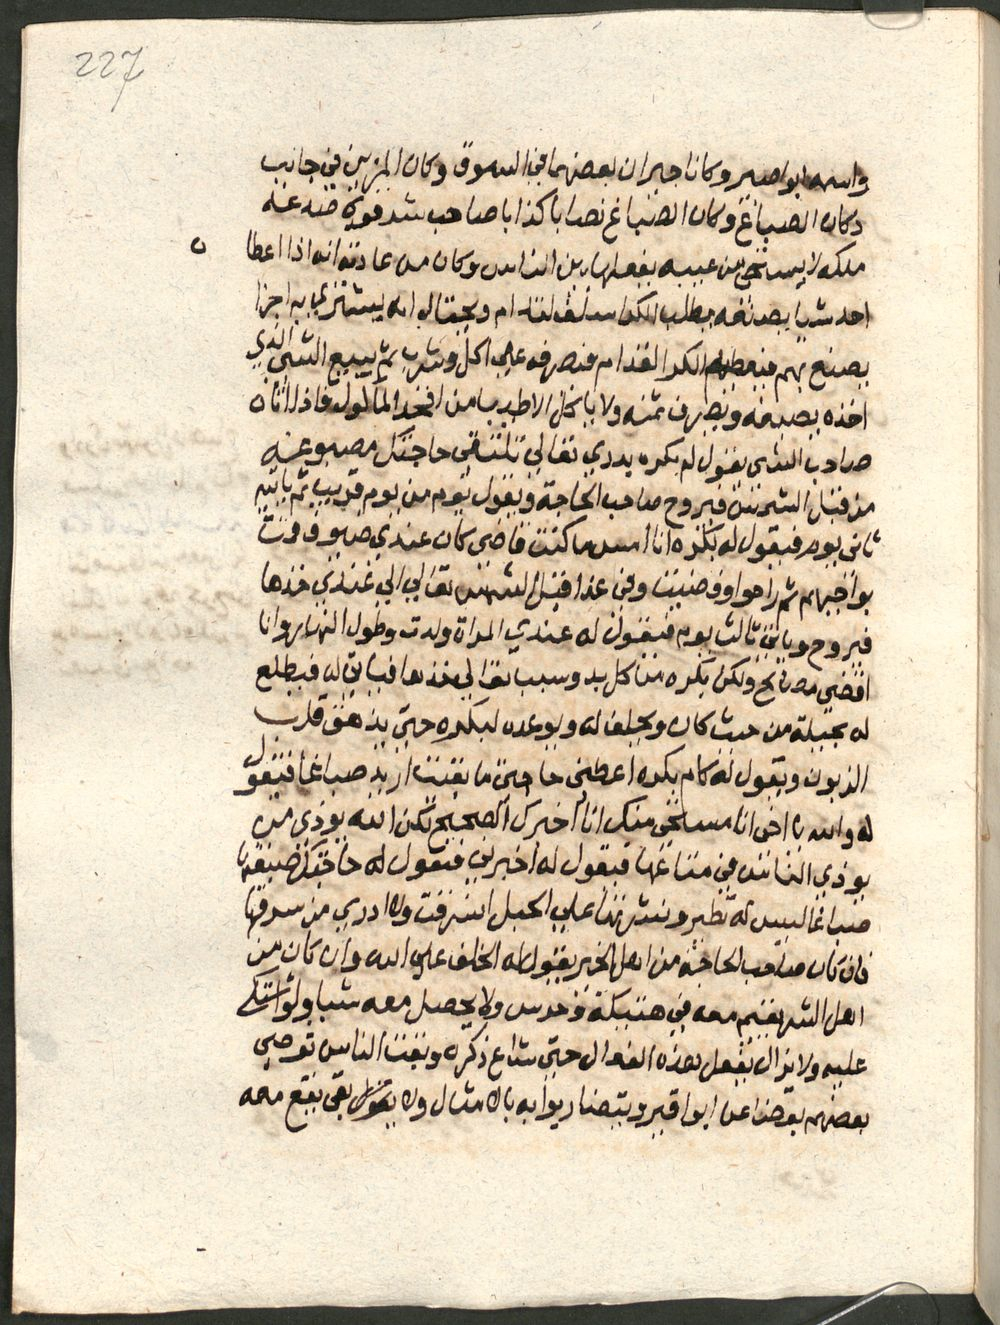 227
واسمه ابو اصير وكانا جيران بعضهما في السوق وكان المزين في جانب
دكان الصباغ وكان الصباغ نصابا كذابا صاحب شد
ملكه لا يستحي من عيبه يفعلها بين الناس وكان من عادته انه اذا اعطا
احد شيا يصبغه يطلب الكرا سلف لقدام ويحتال انه يشتري به اجزا
يصبغ بهم فيعطيهم الكرا لقدام فيصرفه علي اكل وشرب ثم يبيع الشي الذي
اخذه بصبغه ويصرف ثمنه ولا ياكل الا طيب من افخر الماكول فاذا اتاه
صاحب الشي يقول لم بكره بدري تعالي تلتقي حاجتك مصبوغه
من قبل الشمس فيروح صاحب الحاجة ويقول يوم من يوم قريب ثم ياتيه
ثاني يوم فيقول له بكره انا امس ما كنت فاضي كان عندي ضيوف قمت
بواجبهم ثم راحوا وفضيت وفي غدا قبل الشمس تعالي الي عندي خذها
فيروح وياتي ثالث يوم فيقول له عندي المراة ولدت وطول النهار وانا
اقضي مصالح ولكن بكره من كل بد وسبب تعالي خذها فياتي له فيطلع
له بحيلة من حيث كان ويحلف له ويوعده لبكره حتي يزهق قلب
الزبون ويقول له كام بكره اعطني حاجتي ما بقيت اريد صباغا فيقول
له والله يا اخي انا مستحي منك انا اخبرك الصحيح لكن الله يوذي من
يوذي الناس في متاعها فيقول له اخبرني فيقول له حاجتك صبغتها
صباغا ليس له نظير ونشرتها علي الحبل انسرقت ولا ادري من سرقها
فان كان صاحب الحاجة من اهل الخير يقول له الخلف علي الله وان كان من
اهل الشر يقيم معه في هتيكة وجرس ولا يحصل معه شيا ولو اشتكي
عليه ولا يزال يفعل هذه الفعال حتي شاع ذكره وبقت الناس توصي
بعضهم بعضا عن ابو اقير ويتضاربوا به بالامثال ولا بقي يقع معه